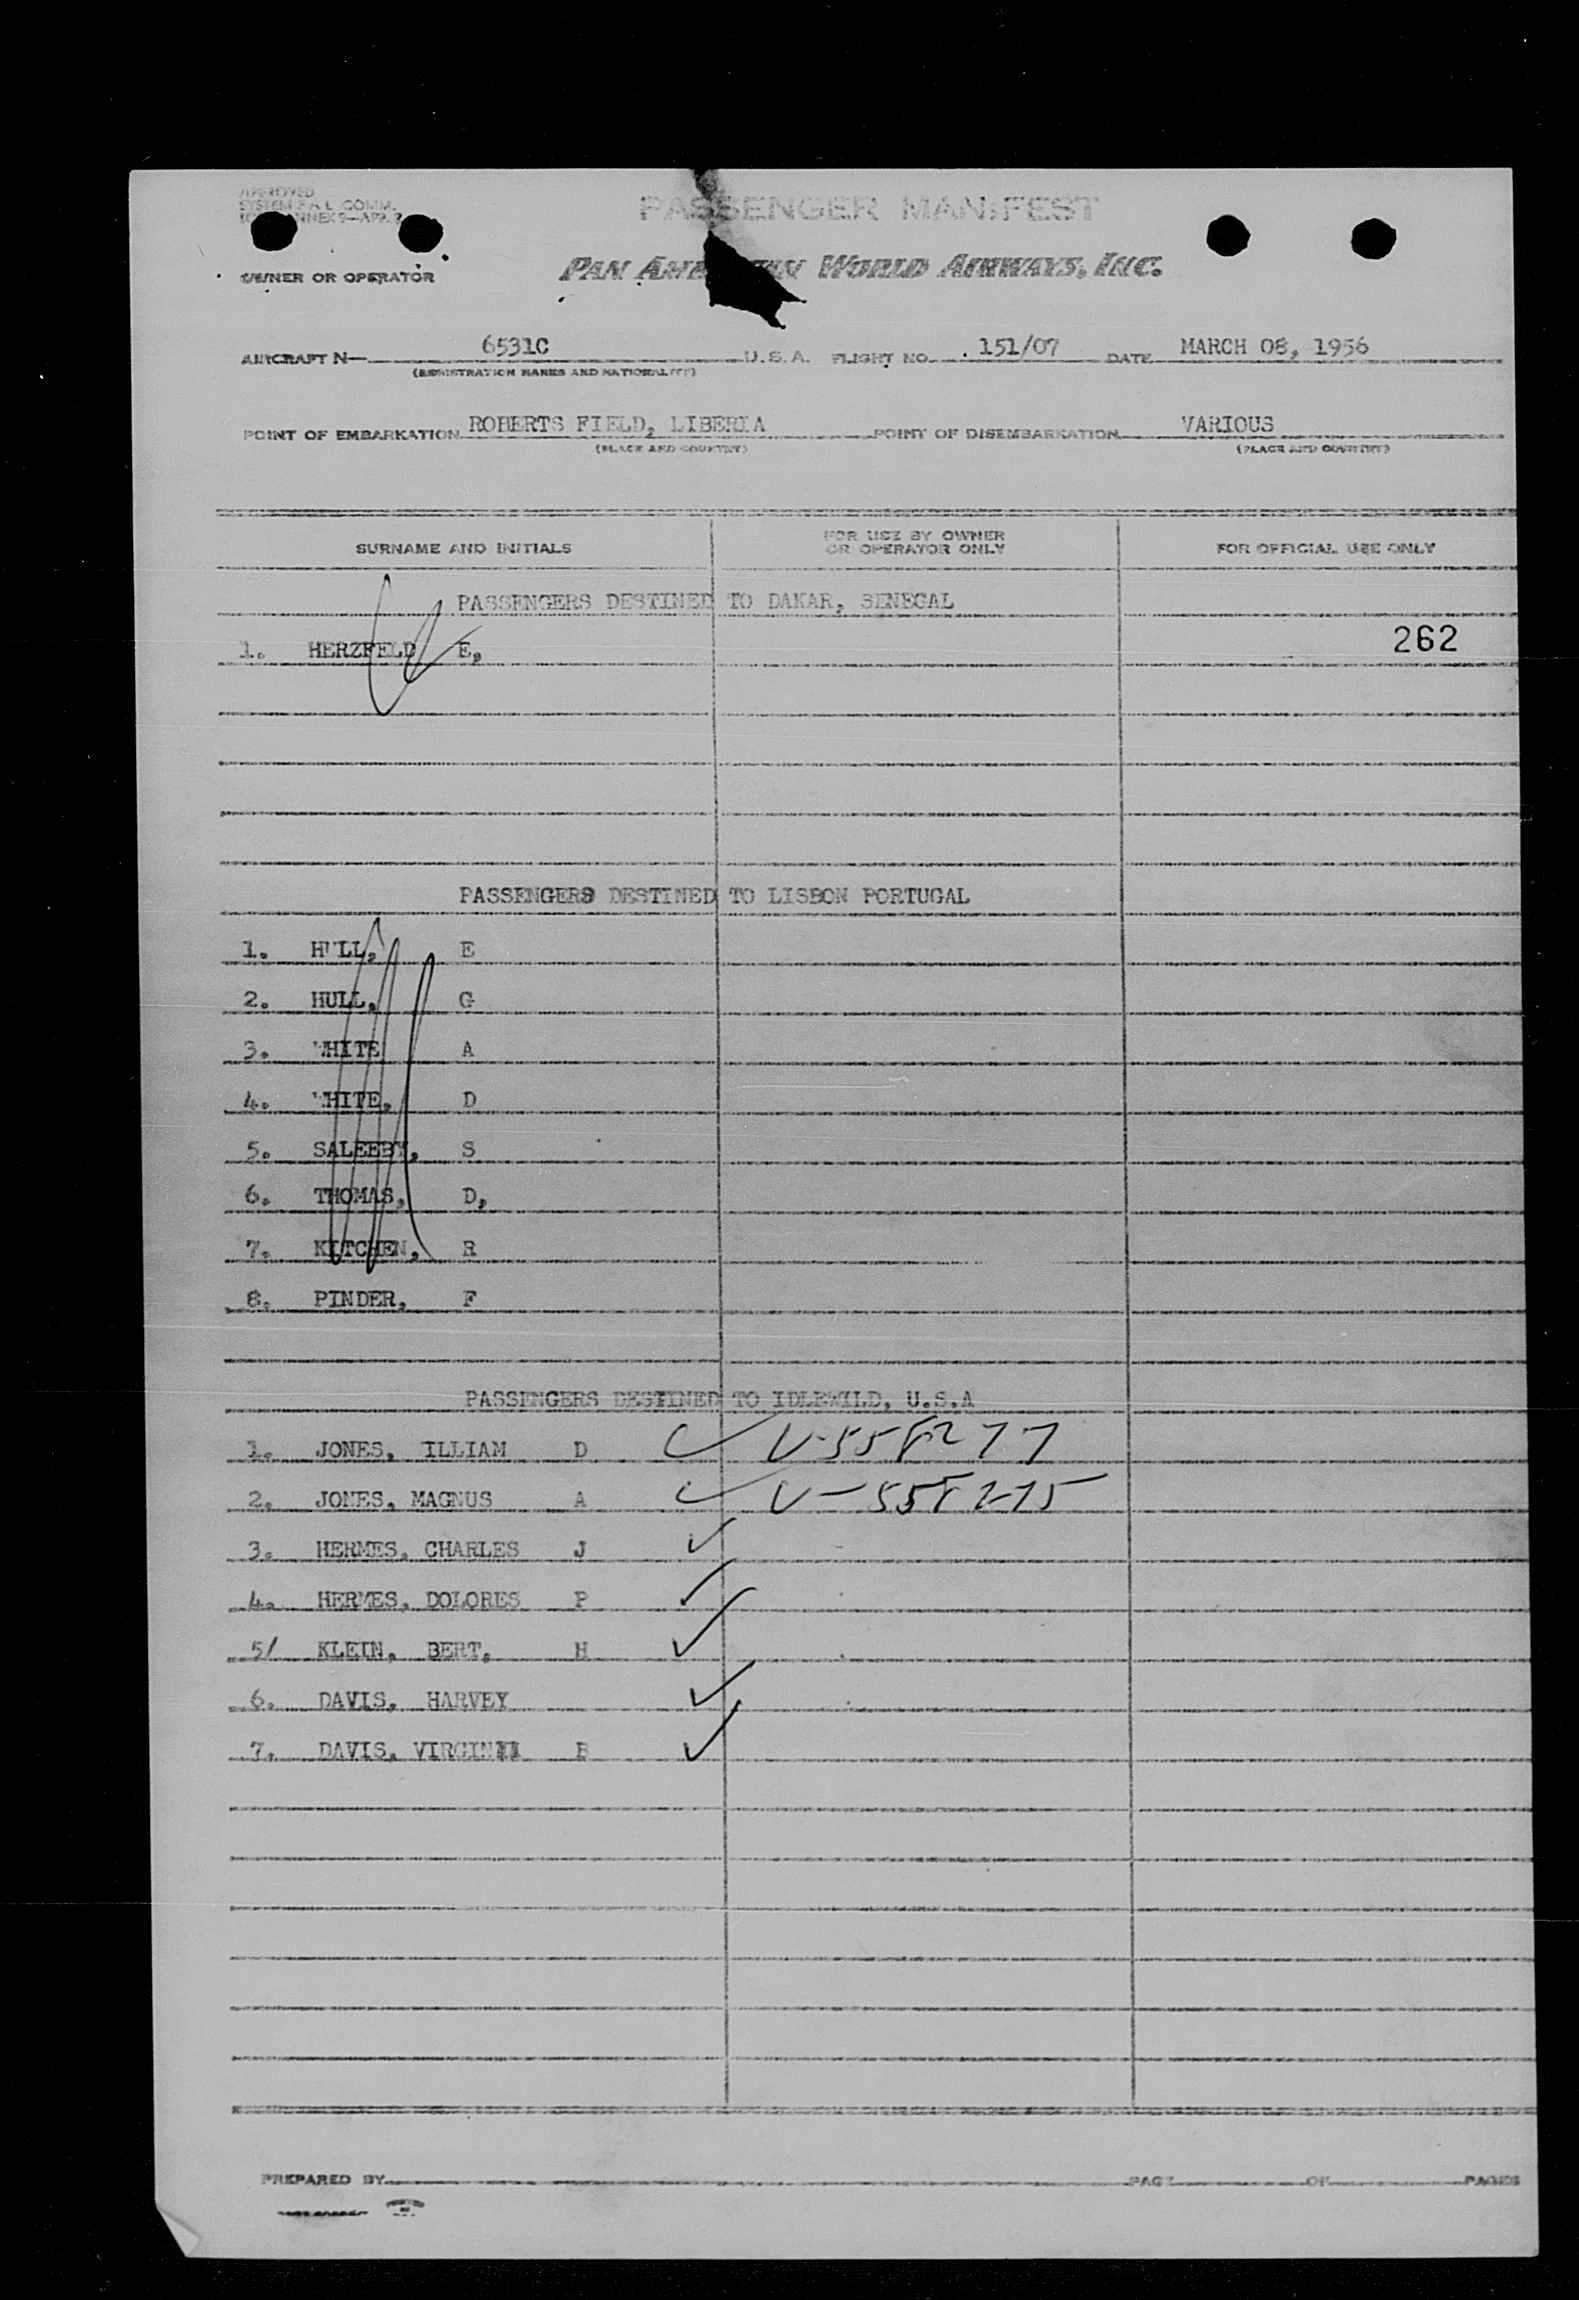 APPROVED
SYSTEM F.A.L. COMM.
ANNEX 9—APP. 2
PASSENGER MANIFEST
OWNER OR OPERATOR
PAN AMERICAN WORLD AIRWAYS, INC.
AIRCRAFT N— 6531C U.S.A. FLIGHT NO. 151/07 DATE MARCH 08, 1956
(REGISTRATION MARKS AND NATIONALITY)
POINT OF EMBARKATION ROBERTS FIELD, LIBERIA POINT OF DISEMBARKATION VARIOUS
(PLACE AND COUNTRY) (PLACE AND COUNTRY)
SURNAME AND INITIALS FOR USE BY OWNER OR OPERATOR ONLY FOR OFFICIAL USE ONLY
PASSENGERS DESTINED TO DAKAR, SENEGAL
1. HERZFELD E, 262
PASSENGERS DESTINED TO LISBON PORTUGAL
1. HULL, E
2. HULL, G
3. WHITE A
4. WHITE, D
5. SALEEBY, S
6. THOMAS, D,
7. KITCHEN, R
8. PINDER, F
PASSENGERS DESTINED TO IDLEWILD, U.S.A
1. JONES, ILLIAM D V-558277
2. JONES, MAGNUS A V-558275
3. HERMES, CHARLES J
4. HERMES, DOLORES P
5/ KLEIN, BERT, H
6. DAVIS, HARVEY
7. DAVIS, B
PREPARED BY PAGE OF PAGES